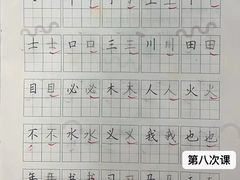 士士口口三三川川田田
目目必必木木人人火火
不不水水义义我我也也
第八次课